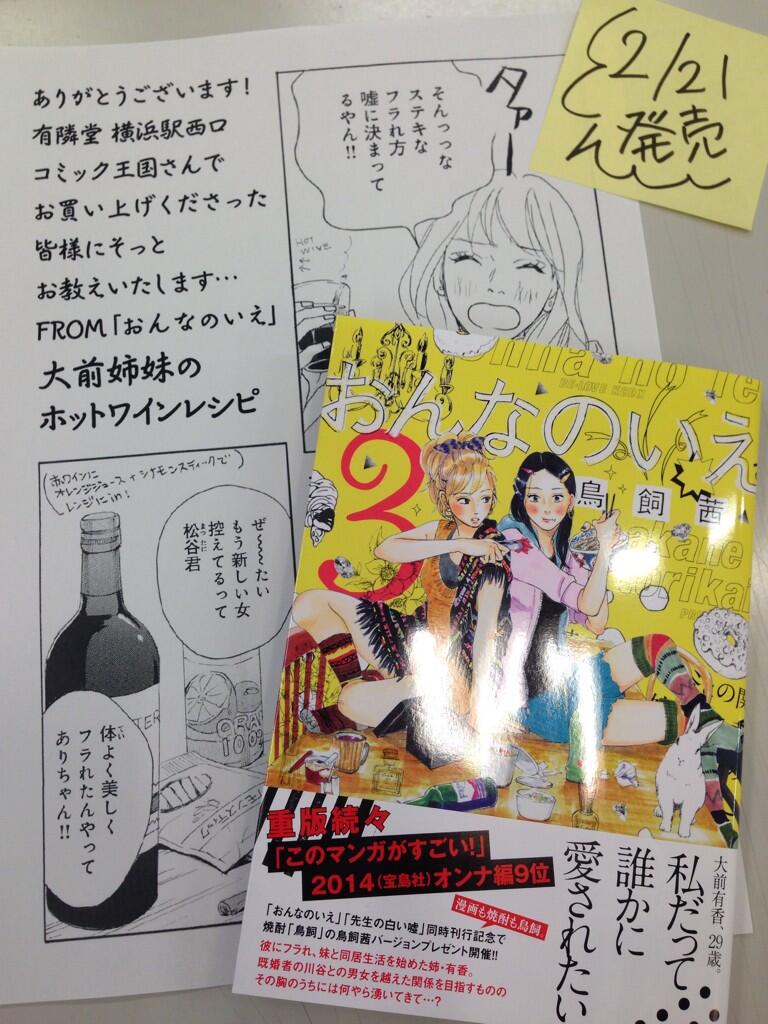 ありがとうございます!
有隣堂 横浜駅西口
コミック王国さんで
お買い上げくださった
皆様にそっと
お教えいたします…
FROM「おんなのいえ」
大前姉妹の
ホットワインレシピ
タァー
そんっっな
ステキな
フラれ方
嘘に決まって
るやん!!
HOT
WINE
2/21
発売
赤ワインに
オレンジジュース+シナモンスティックで
レンジにin!
ぜ〜〜〜たい
もう新しい女
控えてるって
松谷君
まつたに
ORAN
100%
体よく美しく
てい
フラれたんやって
ありちゃん!!
シナモンスティック
onna no ie
BE・LOVE KCDX
おんなのいえ
3
鳥飼茜
akane
torikai
重版続々
「このマンガがすごい!」
2014(宝島社)オンナ編9位
漫画も焼酎も鳥飼。
「おんなのいえ」「先生の白い嘘」同時刊行記念で
焼酎「鳥飼」の鳥飼茜バージョンプレゼント開催!!
彼にフラれ、妹と同居生活を始めた姉・有香。
既婚者の川谷との男女を越えた関係を目指すものの
その胸のうちには何やら湧いてきて…?
大前有香、29歳。
私だって
誰かに
愛されたい……